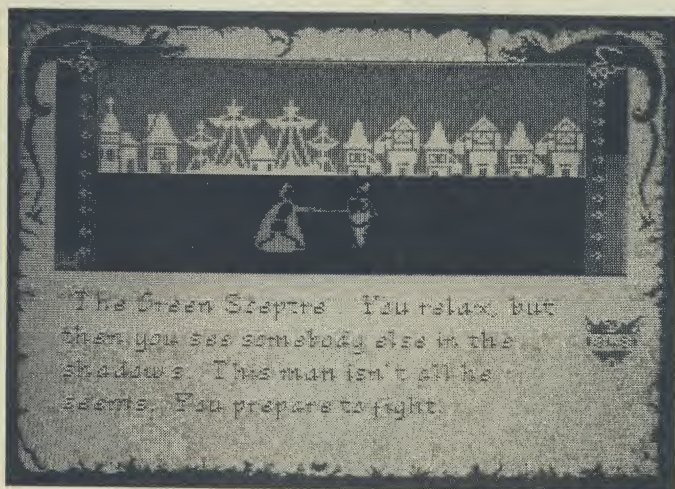 "The Green Sceptre". You relax, but
then you see somebody else in the
shadows. This man isn't all he
seems. You prepare to fight.